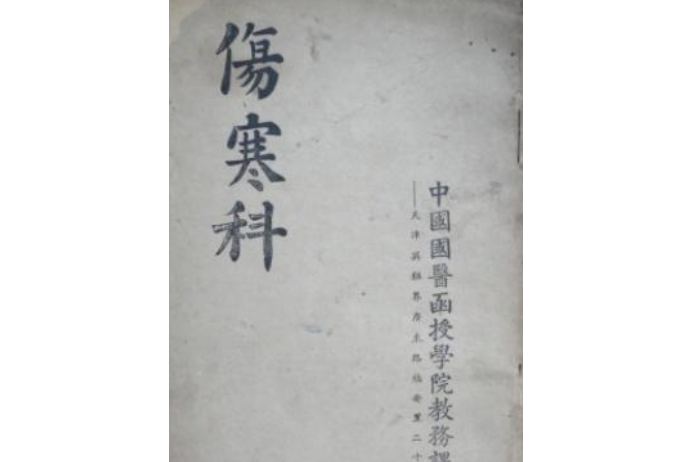 中國國醫函授學院教務課
——天津英租界廣東路福安里二十
傷寒科